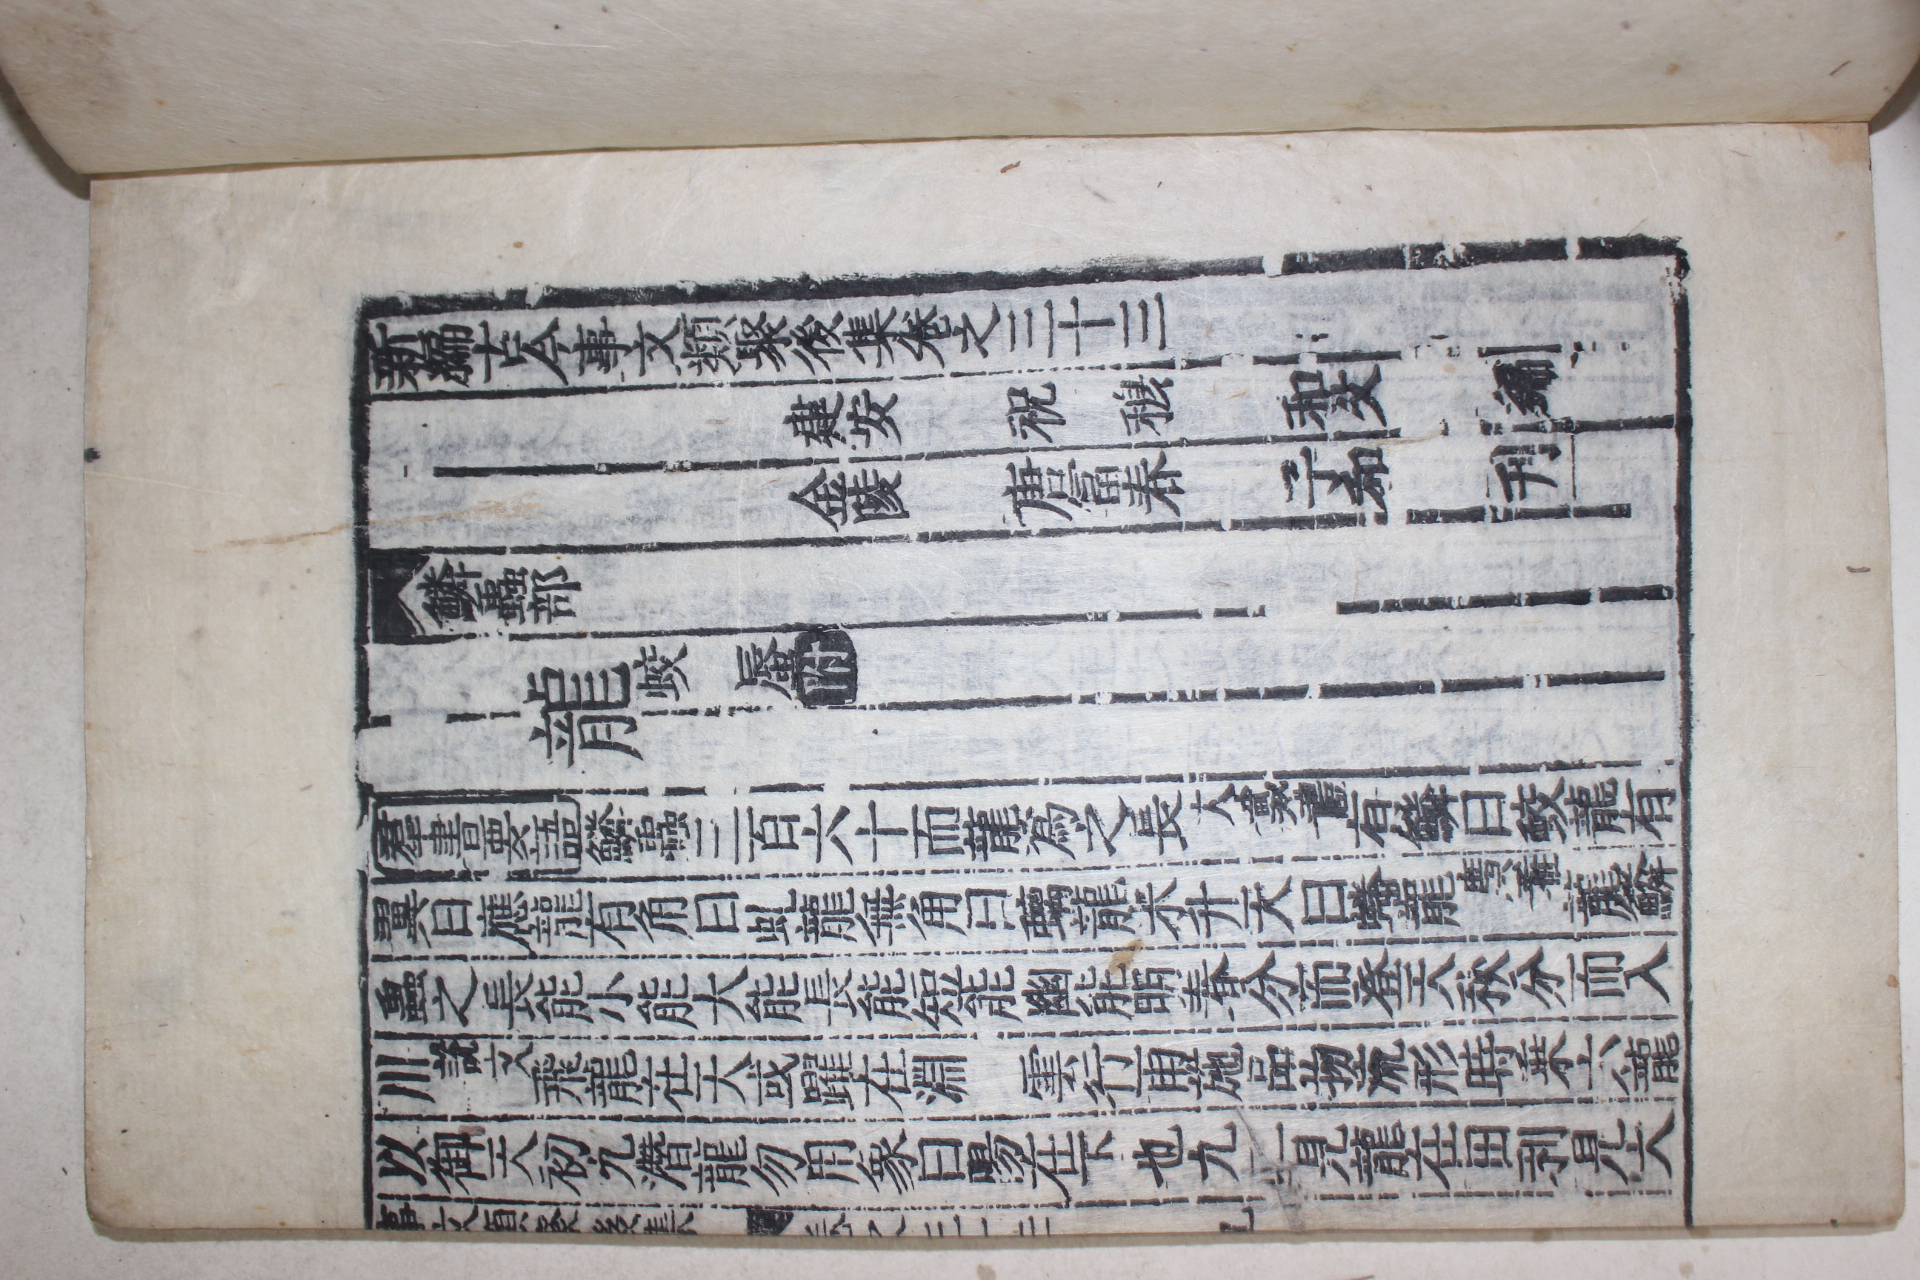 新編古今事文類聚後集卷之三十三
建安 祝 穆 和父 編
金陵 唐富春 子和 刊
鱗蟲部
龍 蛟 蜃附
羣書要語 鱗蟲三百六十而龍爲之長大戴禮有鱗曰蛟龍有
翼曰應龍有角曰虬龍無角曰螭龍未升天曰蟠龍廣雅 龍鱗
蟲之長能小能大能長能短能幽能明春分而登天秋分而入
川說文飛龍在天或躍在淵 雲行雨施品物流形時乘六龍
以御天初九潛龍勿用象曰陽在下也九二見龍在田利見大